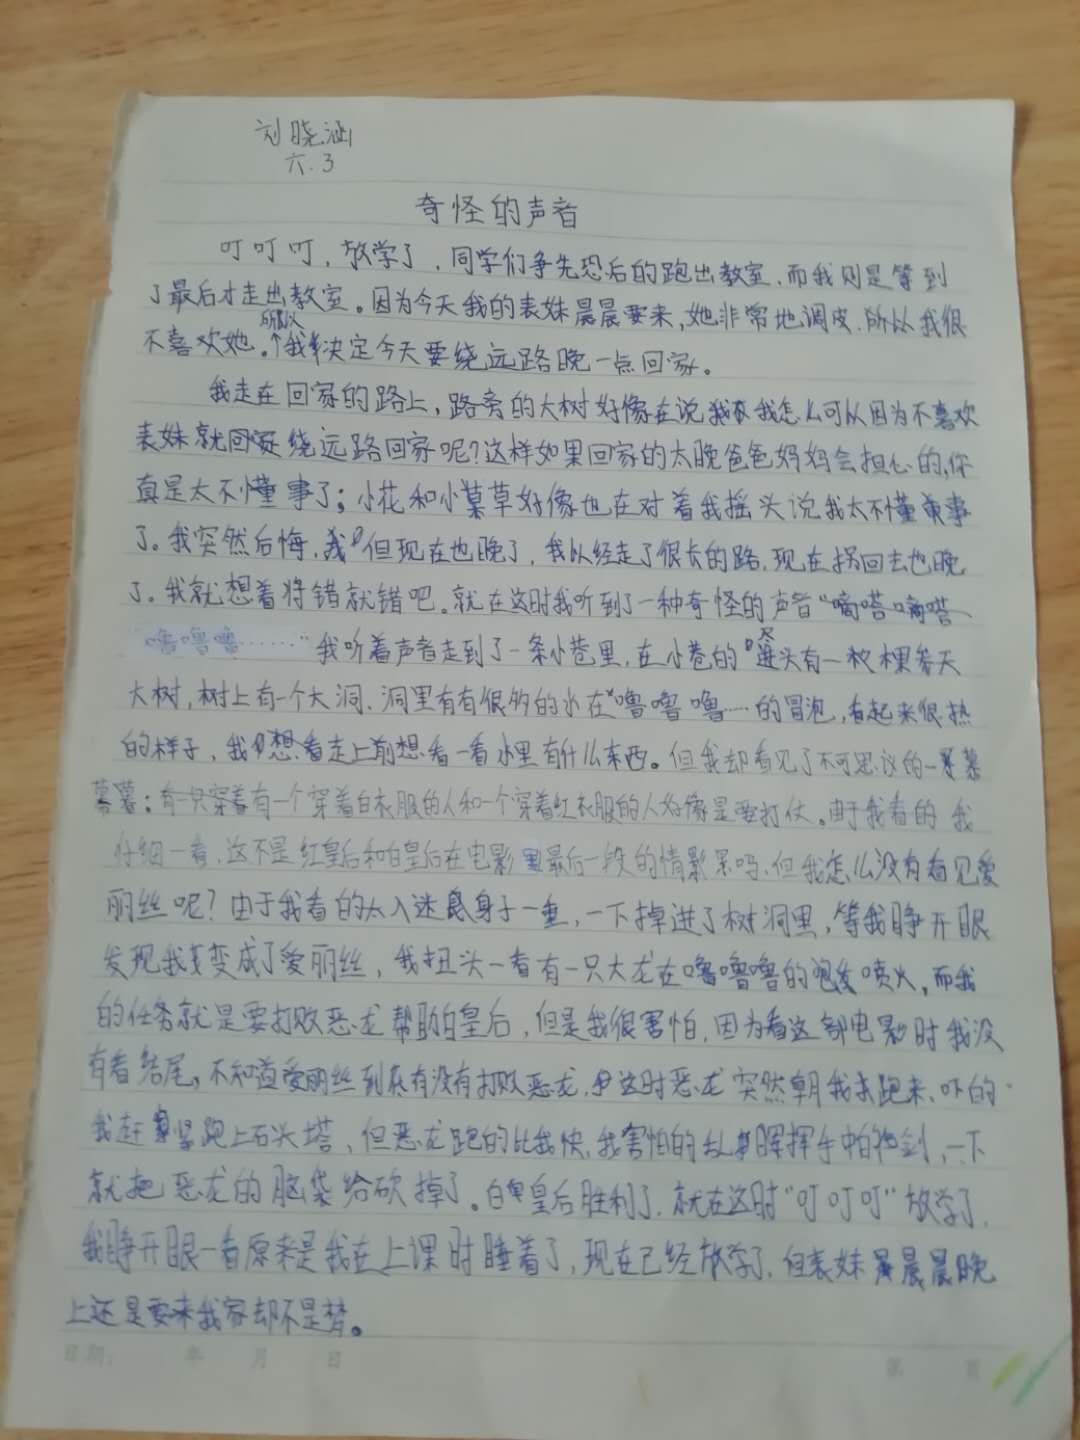 刘晓涵
六.3
奇怪的声音
叮叮叮，放学了，同学们争先恐后的跑出教室，而我则是等到
了最后才走出教室。因为今天我的表妹晨晨要来，她非常地调皮，所以我很
不喜欢她。所以我决定今天要绕远路晚一点回家。
我走在回家的路上，路旁的大树好像在说我怎么可以因为不喜欢
表妹就绕远路回家呢？这样如果回家的太晚爸爸妈妈会担心的，你
真是太不懂事了；小花和小草好像也在对着我摇头说我太不懂事
了。我突然后悔，但现在也晚了，我以经走了很长的路，现在拐回去也晚
了。我就想着将错就错吧。就在这时我听到了一种奇怪的声音“嘀嗒嘀嗒
噜噜噜……”我听着声音走到了一条小巷里，在小巷的尽头有一棵参天
大树，树上有一个大洞，洞里有有很多的水在“噜噜噜……的冒泡，看起来很热
的样子，我想着走上前想看一看水里有什么东西。但我却看见了不可思议的一幕
幕：有一个穿着白衣服的人和一个穿着红衣服的人好像是要打仗。由于我看的 我
仔细一看，这不是红皇后和白皇后在电影里最后一段的情景吗，但我怎么没有看见爱
丽丝呢？由于我看的太入迷身子一歪，一下掉进了树洞里，等我睁开眼
发现我变成了爱丽丝，我扭头一看有一只大龙在噜噜噜的喷火，而我
的任务就是要打败恶龙帮助白皇后，但是我很害怕，因为看这部电影时我没
有看结尾，不知道爱丽丝到底有没有打败恶龙，这时恶龙突然朝我跑来，吓的
我赶紧跑上石头塔，但恶龙跑的比我快，我害怕的乱挥手中的剑，一下
就把恶龙的脑袋给砍掉了。白皇后胜利了，就在这时“叮叮叮”放学了，
我睁开眼一看原来是我在上课时睡着了，现在已经放学了，但表妹晨晨晚
上还是要来我家却不是梦。
日期： 年 月 日
第 页